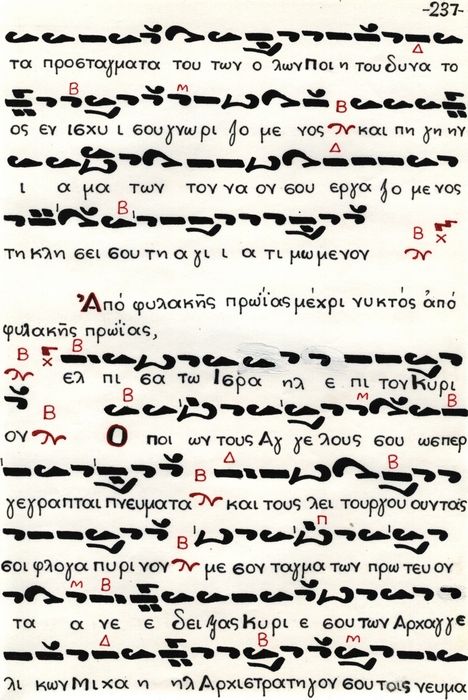 -237-
τα προσταγματα του των ο λων Ποι η του δυνα το
ος εν ισχυ ι σου γνωρι ζο με νος και πη γη ην
ι α μα των τον να ον σου εργα ζο με νος
τη κλη σει σου τη α γι ι α τι μω μενον
Ἀπό φυλακῆς πρωΐας μέχρι νυκτός ἀπό
φυλακῆς πρωΐας,
ελ πι σα τω Ισρα ηλ ε πι τον Κυρι
ον Ο ποι ων τους Αγ γε λους σου ωσπερ
γεγραπται πνευματα και τους λει τουργου ουντας
σοι φλογα πυρινον με σον ταγμα των πρω τευ ον
τα α νε ε δει ξας Κυρι ε σου των Αρχαγγε
λι κων Μι χα η ηλ Αρχιστρατηγον σου τοις νευμα